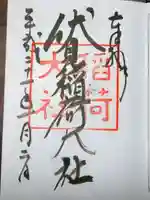 奉拝
伏見稲荷大社
平成三十一年一月二日
稲荷
大社